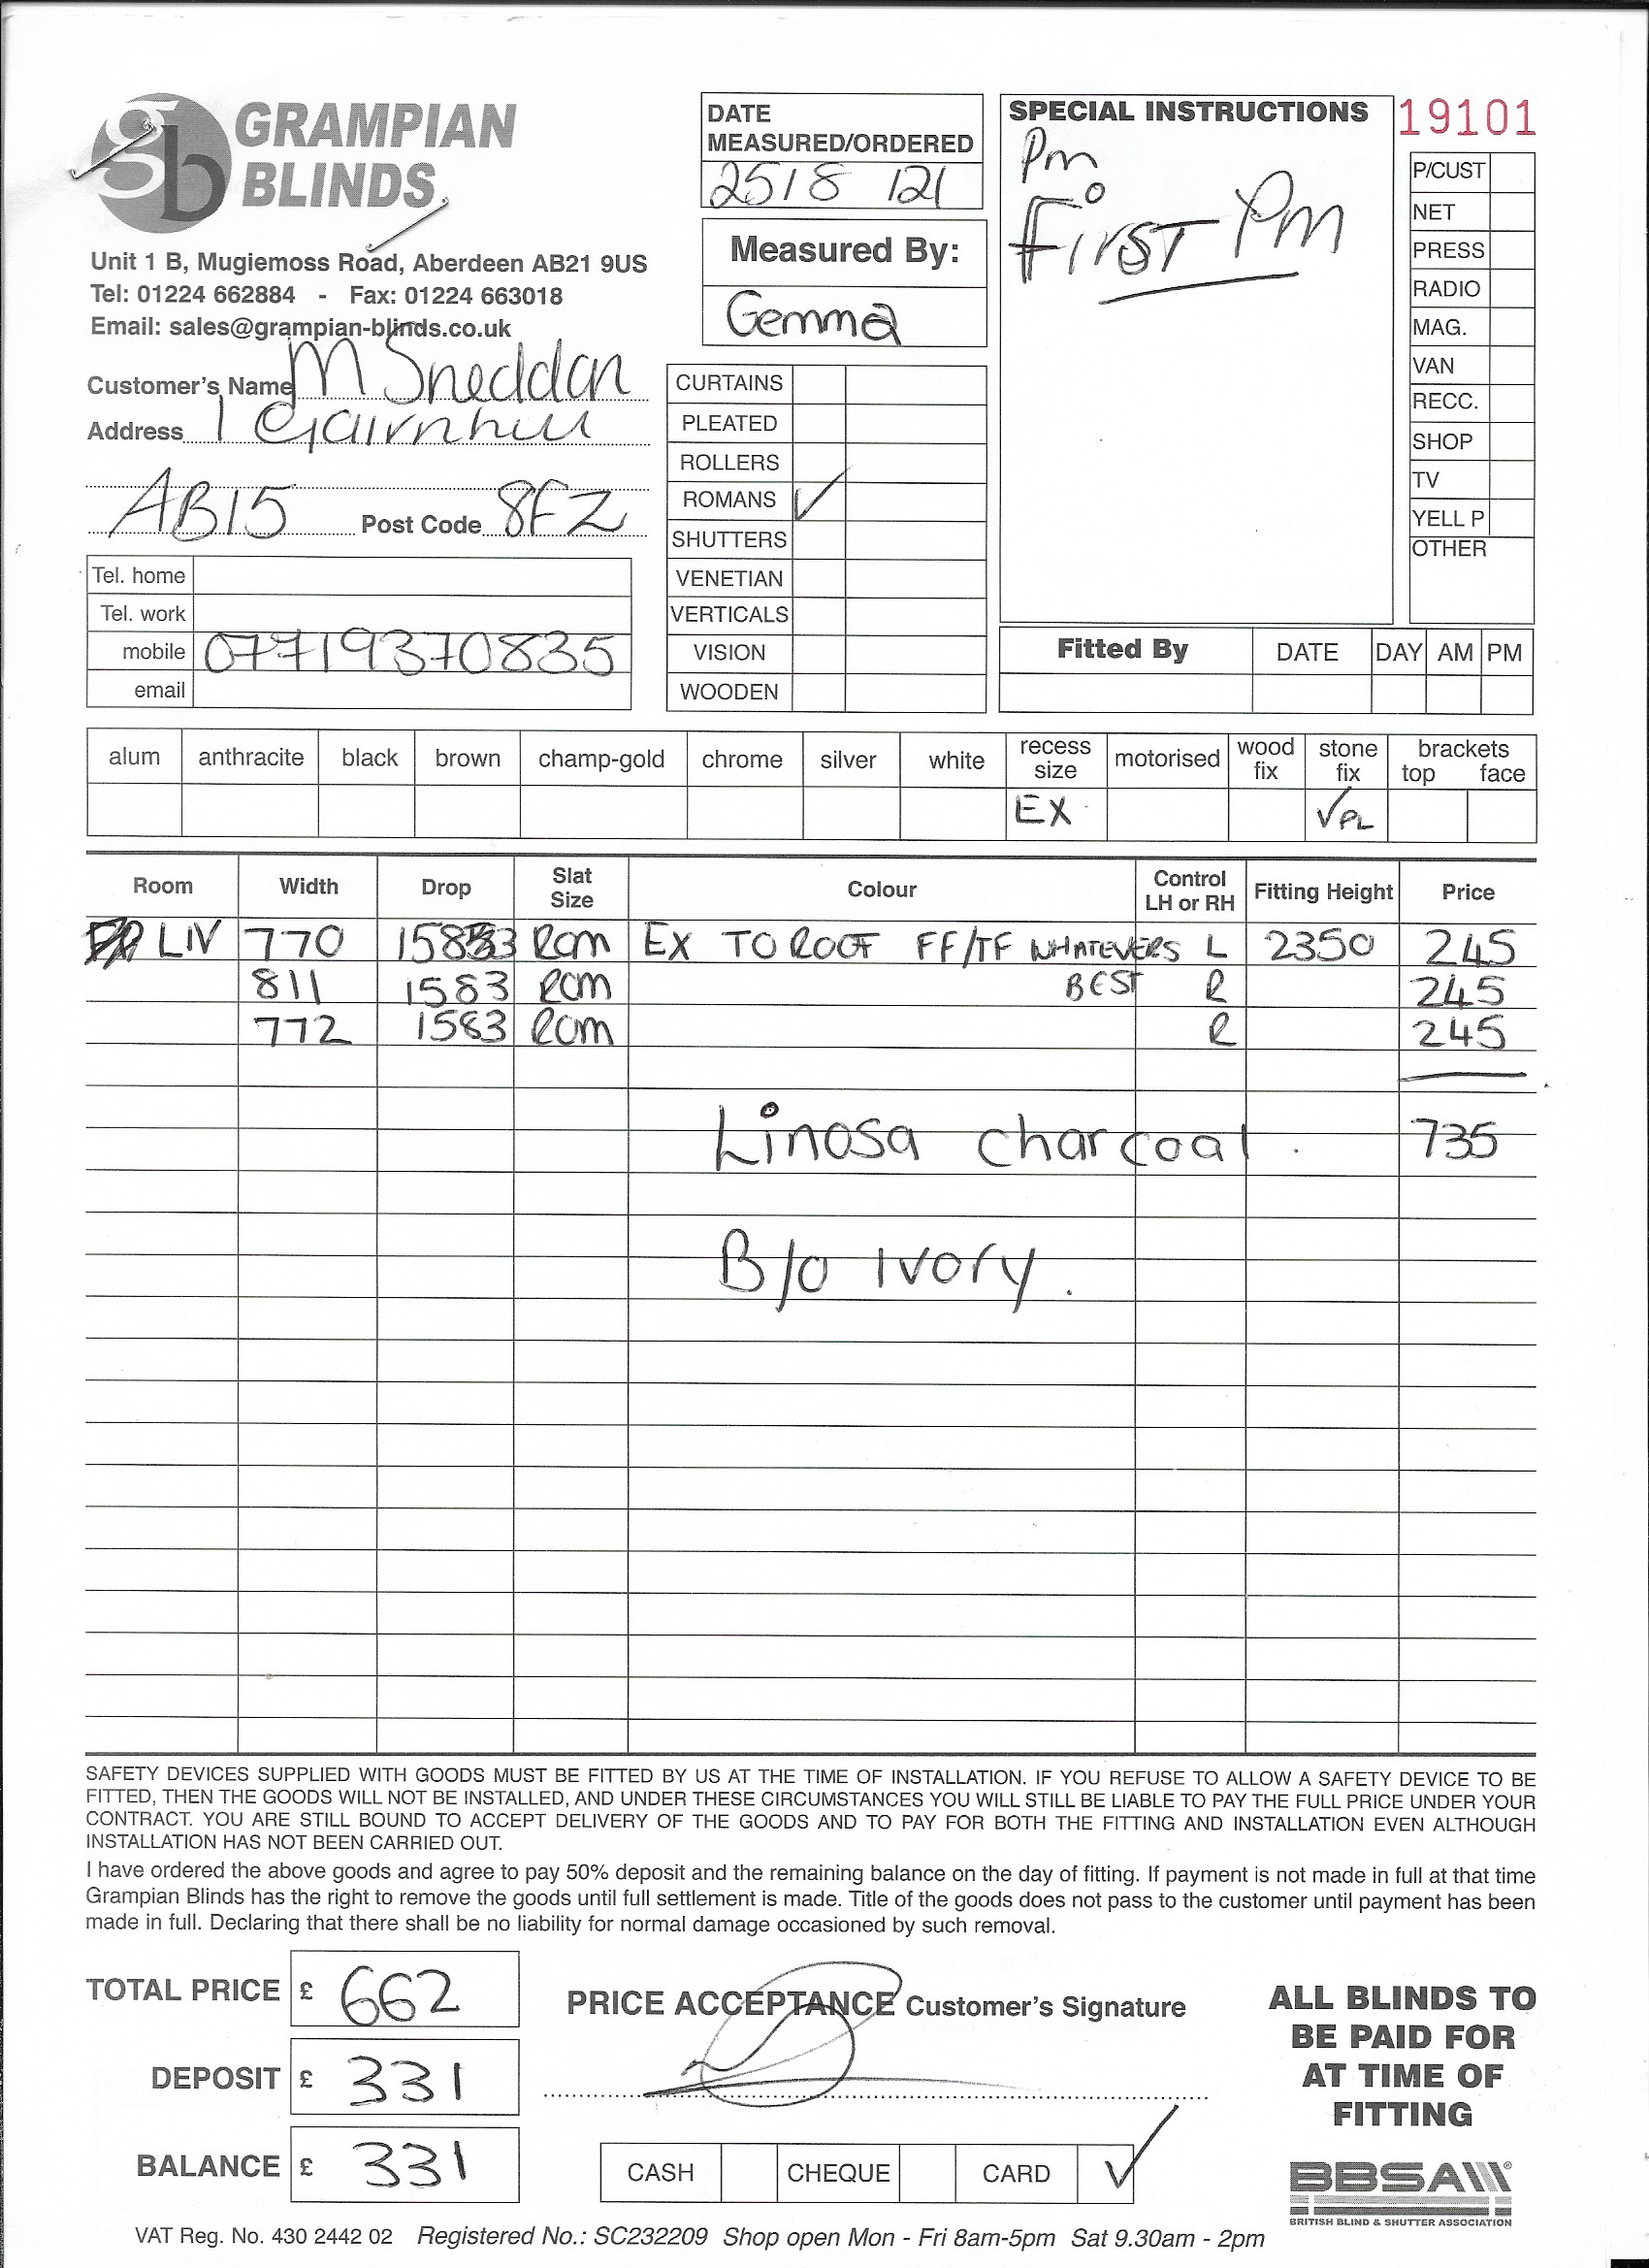 gb GRAMPIAN BLINDS
Unit 1 B, Mugiemoss Road, Aberdeen AB21 9US
Tel: 01224 662884 - Fax: 01224 663018
Email: sales@grampian-blinds.co.uk
Customer's Name M Sneddon
Address 1 Gairnhill
AB15 Post Code 8FZ
Tel. home
Tel. work
mobile 07719370835
email
DATE
MEASURED/ORDERED
25/8 /21
Measured By:
Gemma
CURTAINS
PLEATED
ROLLERS
ROMANS ✓
SHUTTERS
VENETIAN
VERTICALS
VISION
WOODEN
SPECIAL INSTRUCTIONS
Pm
FIRST Pm
19101
P/CUST
NET
PRESS
RADIO
MAG.
VAN
RECC.
SHOP
TV
YELL P
OTHER
Fitted By DATE DAY AM PM
alum anthracite black brown champ-gold chrome silver white recess size motorised wood fix stone fix brackets top face
EX ✓PL
Room Width Drop Slat Size Colour Control LH or RH Fitting Height Price
LIV 770 1583 Rom EX TO ROOF FF/TF WHATEVERS L 2350 245
811 1583 Rom BEST R 245
772 1583 Rom R 245
Linosa charcoal. 735
B/O Ivory.
SAFETY DEVICES SUPPLIED WITH GOODS MUST BE FITTED BY US AT THE TIME OF INSTALLATION. IF YOU REFUSE TO ALLOW A SAFETY DEVICE TO BE
FITTED, THEN THE GOODS WILL NOT BE INSTALLED, AND UNDER THESE CIRCUMSTANCES YOU WILL STILL BE LIABLE TO PAY THE FULL PRICE UNDER YOUR
CONTRACT. YOU ARE STILL BOUND TO ACCEPT DELIVERY OF THE GOODS AND TO PAY FOR BOTH THE FITTING AND INSTALLATION EVEN ALTHOUGH
INSTALLATION HAS NOT BEEN CARRIED OUT.
I have ordered the above goods and agree to pay 50% deposit and the remaining balance on the day of fitting. If payment is not made in full at that time
Grampian Blinds has the right to remove the goods until full settlement is made. Title of the goods does not pass to the customer until payment has been
made in full. Declaring that there shall be no liability for normal damage occasioned by such removal.
TOTAL PRICE £ 662
DEPOSIT £ 331
BALANCE £ 331
PRICE ACCEPTANCE Customer's Signature
CASH CHEQUE CARD ✓
ALL BLINDS TO
BE PAID FOR
AT TIME OF
FITTING
BBSA
BRITISH BLIND & SHUTTER ASSOCIATION
VAT Reg. No. 430 2442 02 Registered No.: SC232209 Shop open Mon - Fri 8am-5pm Sat 9.30am - 2pm